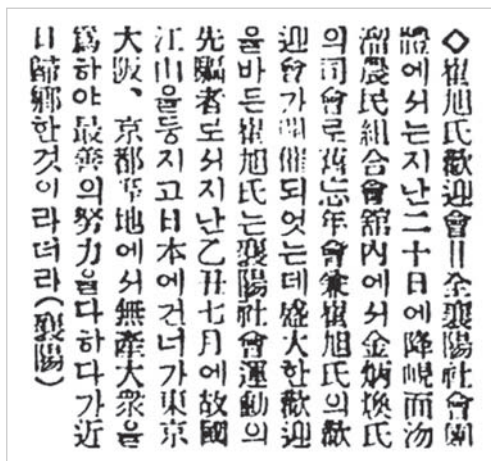 ◇崔旭氏歡迎會=全襄陽社會團
體에서는지난二十日에降峴面沕
溜農民組合會舘內에서金炳煥氏
의司會로舊忘年會兼崔旭氏의歡
迎會가開催되엇는데盛大한歡迎
을바든崔旭氏는襄陽社會運動의
先驅者로서지난乙丑七月에故國
江山을등지고日本에건너가東京
大阪、京都等地에서無產大衆을
爲하야最善의努力을다하다가近
日歸鄕한것이라더라(襄陽)